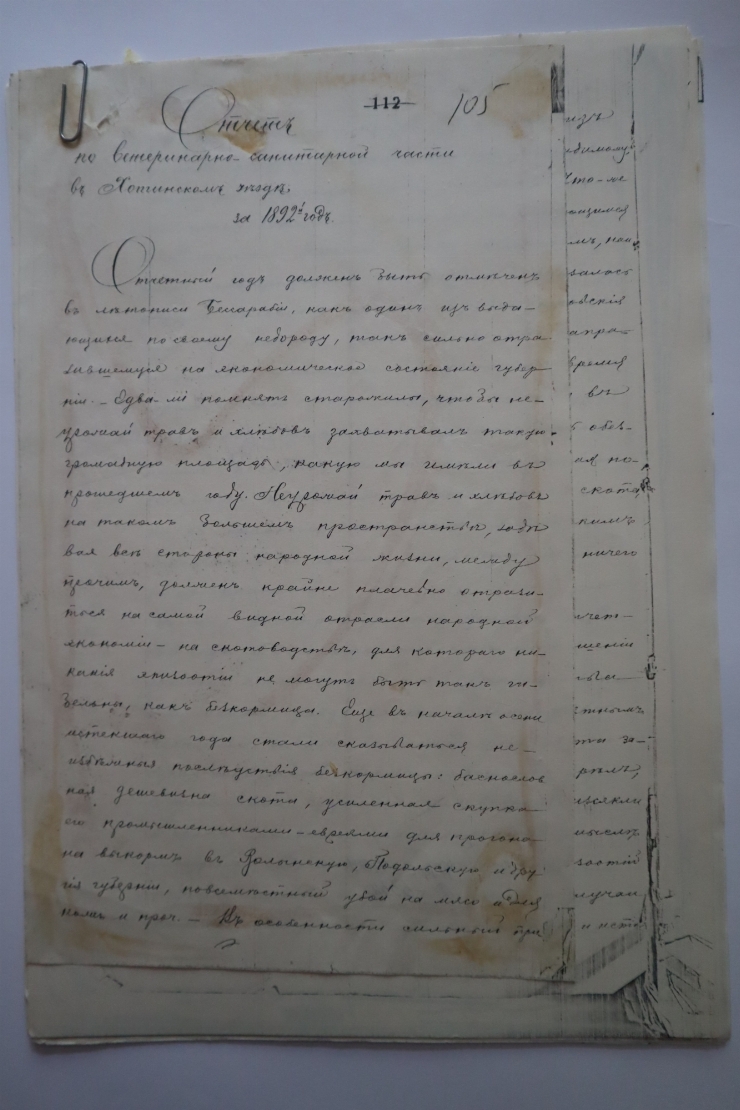 112 105
Отчетъ
по ветеринарно-санитарной части
въ Хотинскомъ уѣздѣ
за 1892 годъ.
Отчетный годъ долженъ быть отмѣченъ
въ лѣтописи Бессарабіи, какъ одинъ изъ выда-
ющихся по своему неброду, такъ сильно отра-
зившемуся на экономической состояніе губер-
ніи. - Едва-ли помнятъ старожилы, чтобы не-
урожай травъ и хлѣбовъ захватывалъ такую
громадную площадь, какую мы имѣли въ
прошедшемъ году. Неурожай травъ и хлѣбовъ
на такомъ большемъ пространствѣ,
вая всѣ стороны народной жизни, между
прочимъ, долженъ крайне плачевно отрази-
ться на самой видной отрасли народной
экономіи - на скотоводствѣ, для котораго ни-
какія эпизоотіи не могутъ быть такъ ги-
бельны, какъ безкормица. Еще въ началѣ осени
истекшаго года стали сказываться не-
избѣжныя послѣдствія безкормицы: баснослов
ная дешевизна скота, усиленная скупка
его промышленниками-евреями для прогона
на выкормъ въ Волынскую, Подольскую и дру
гія губерніи, повсемѣстный убой на мясо и для
кожъ и проч. - Въ особенности сильный при
изъ
что-же
ющимся
валось
время
въ
скота
ничего
шеніи
изсякли
зоотій
случаи